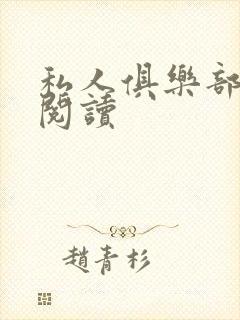 私人俱樂部
閱讀
趙青杉